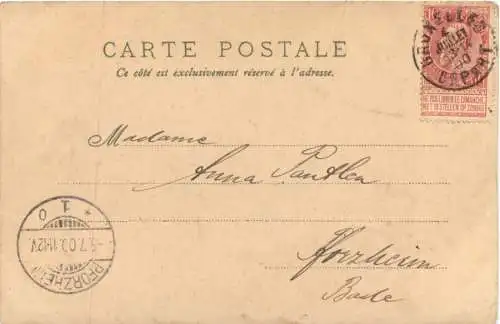 CARTE POSTALE
Ce côté est exclusivement réservé à l'adresse.
BRUXELLES
JUILLET
DEPART
NE PAS LIVRER LE DIMANCHE
NIET BESTELLEN OP ZONDAG
Madame
Anna
Pforzheim
Bade
* 1 0
-5.7.00.11-12V.
PFORZHEIM